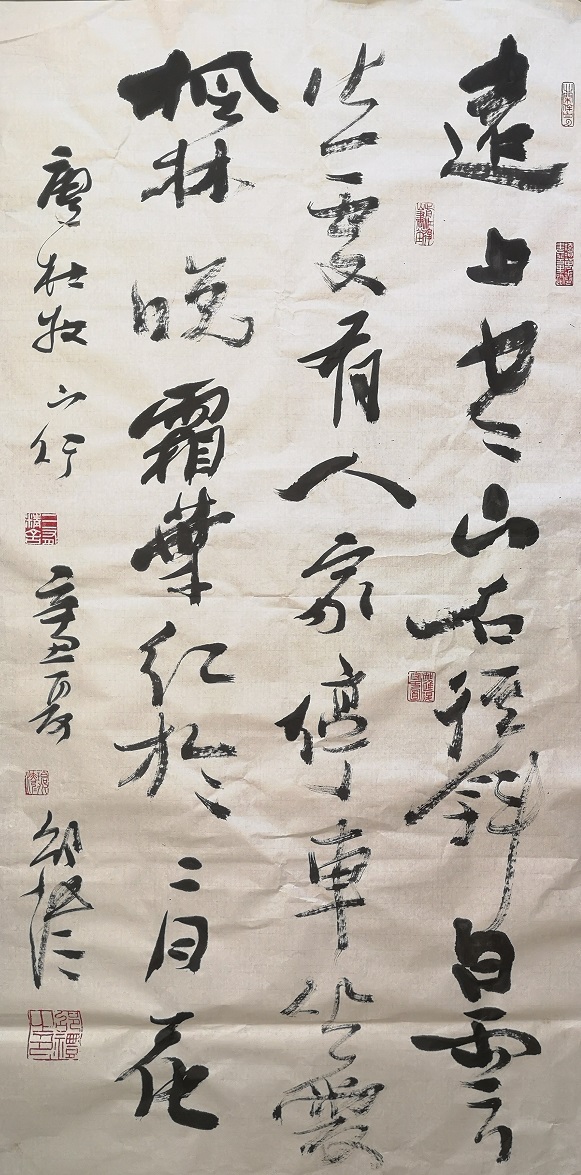 遠上寒山石徑斜白雲
生處有人家停車坐愛
楓林晚霜葉紅於二月花
唐杜牧山行 辛丑夏